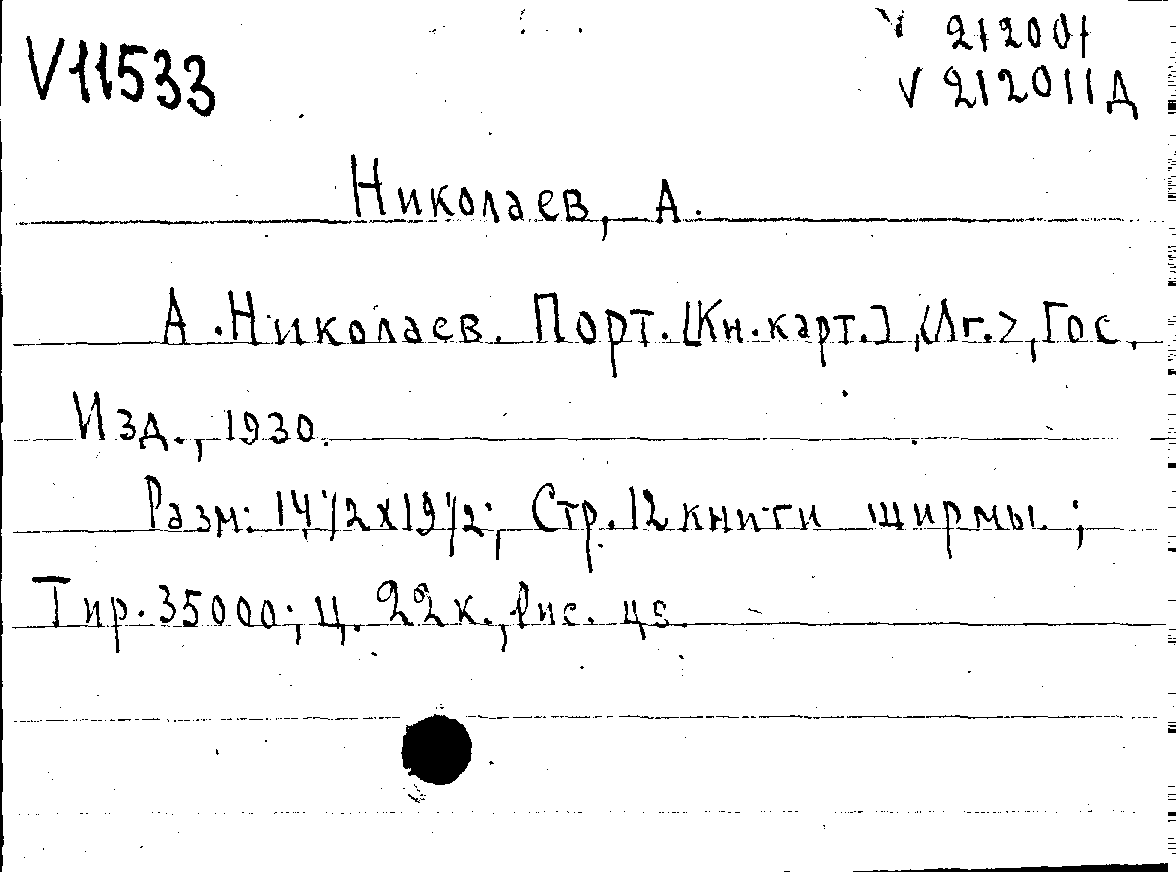 V11533
V 212001
V 212011Д
Николаев, А.
А. Николаев. Порт. [Кн.-карт.], <Лг.>, Гос.
Изд., 1930.
Разм: 14 1/2 x 19 1/2; Стр. 12 книги ширмы.;
Тир. 35000; ц. 22к., Рис. цв.